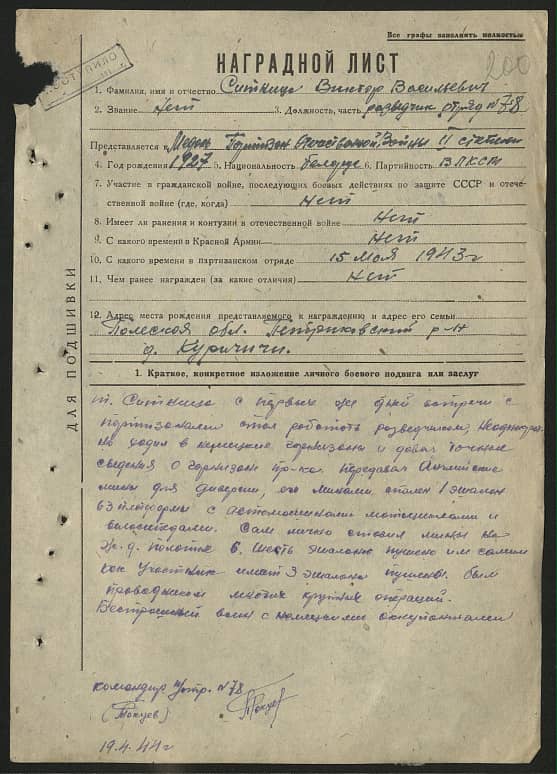 Все графы заполнять полностью
ПОСТУПИЛО
200
НАГРАДНОЙ ЛИСТ
1. Фамилия, имя и отчество Ситница Виктор Васильевич
2. Звание нет 3. Должность, часть разведчик отряд №78
Представляется к Медали Партизан Отечественной Войны II степени
4. Год рождения 1927 5. Национальность белорус 6. Партийность ВЛКСМ
7. Участие в гражданской войне, последующих боевых действиях по защите СССР и отече-
ственной войне (где, когда) нет
8. Имеет ли ранения и контузии в отечественной войне нет
9. С какого времени в Красной Армии нет
10. С какого времени в партизанском отряде 15 мая 1943г
11. Чем ранее награжден (за какие отличия) нет
12. Адрес места рождения представляемого к награждению и адрес его семьи
Полесская обл. Петриковский р-н
д. Куричичи.
1. Краткое, конкретное изложение личного боевого подвига или заслуг
т. Ситница с первых же дней встречи с
партизанами стал работать разведчиком. Неоднократ
но ходил в немецкие гарнизоны и давал точные
сведения о гарнизон пр-ка. передавал Английские
мины для диверсии, его минами спален 1 эшалон
63 платформы с автомашинами мотоциклами и
велосипедами. Сам лично ставил мины на
ж.д. полотне 6. шесть эшалонов пущено им самим
как участник имеет 3 эшалона пущены. был
проводником многих крупных операций.
Бесстрашный воин с немецкими оккупантами
командир п/отр. №78
19.4.44г
ДЛЯ ПОДШИВКИ